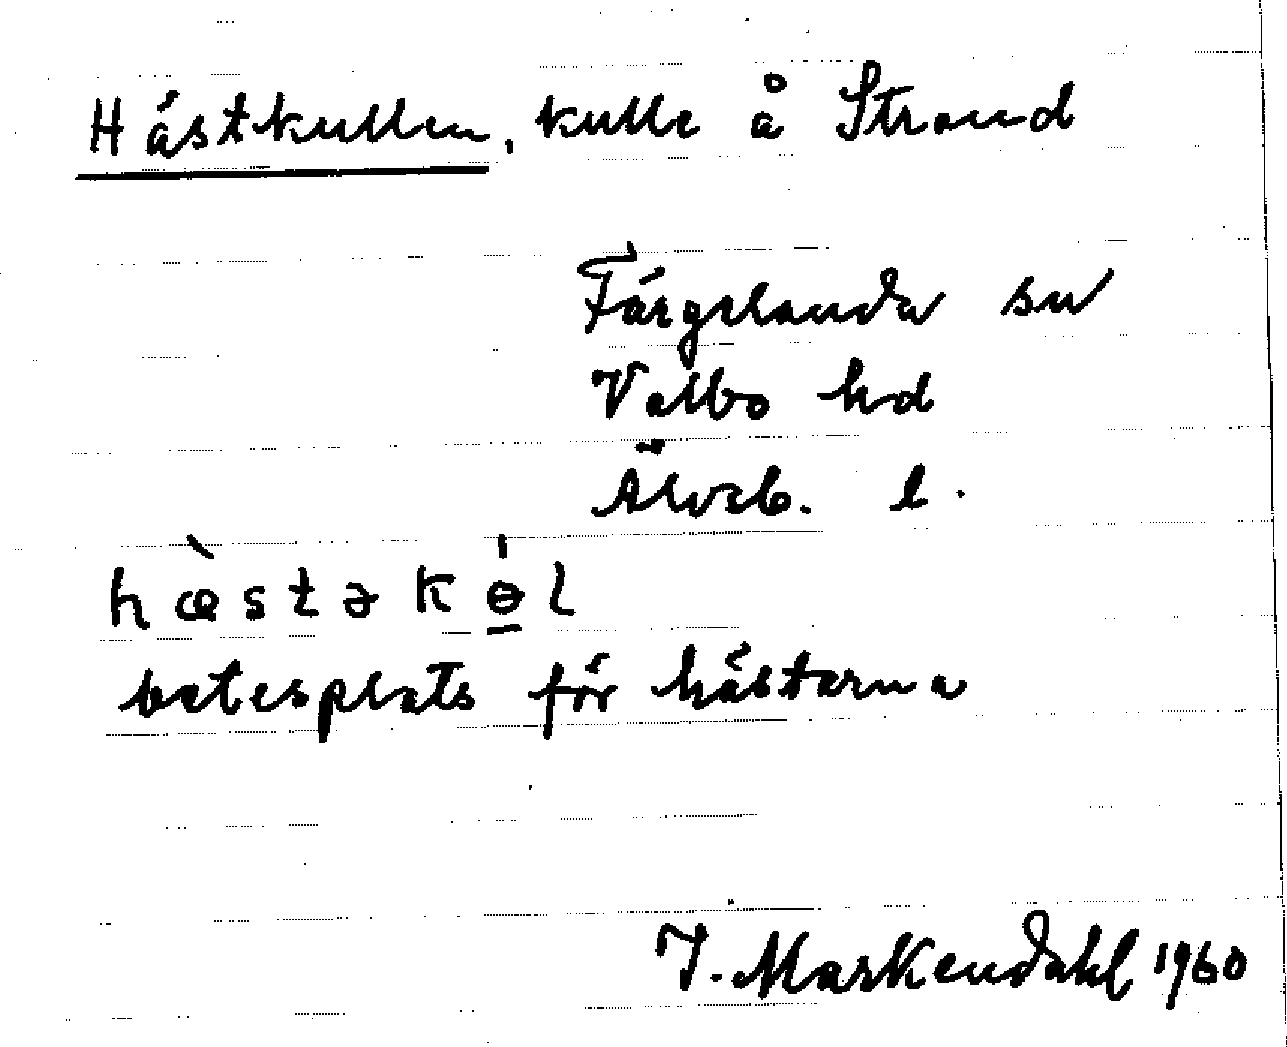 Hästkullen, kulle å Strand
Färgelanda sn
Valbo hd
Älvsb. l.
hæ̀stəkɵ̠́l
betesplats för hästarna
I. Markendahl 1960